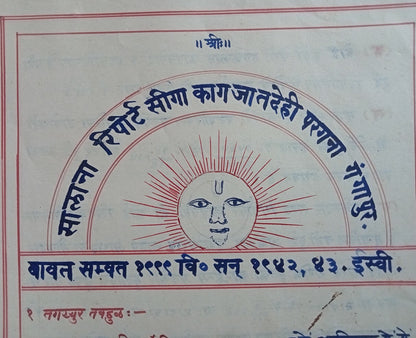 ॥ श्रीः॥
सालाना रिपोर्ट सीगा कागजातदेही परगना गंगापुर.
बाबत सम्वत १९९९ वि० सन् १९४२, ४३. ईस्वी.
१ तगय्युर तबद्दुल :—